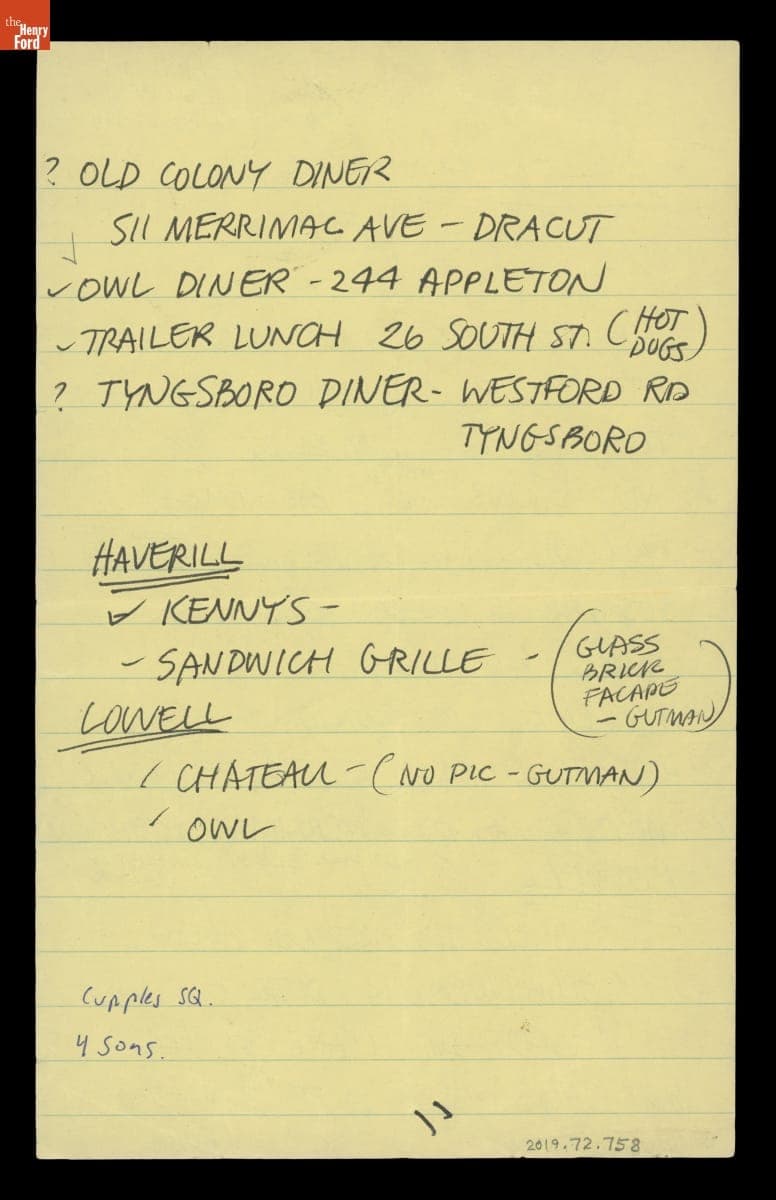 the
Henry
Ford
? OLD COLONY DINER
511 MERRIMAC AVE - DRACUT
✓ OWL DINER - 244 APPLETON
✓ TRAILER LUNCH 26 SOUTH ST. (HOT DOGS)
? TYNGSBORO DINER - WESTFORD RD
TYNGSBORO
HAVERILL
✓ KENNY'S -
- SANDWICH GRILLE - (GLASS
BRICK
FACADE
- GUTMAN)
LOWELL
✓ CHATEAU - (NO PIC - GUTMAN)
✓ OWL
Cupples SQ.
4 Sons.
2019.72.758